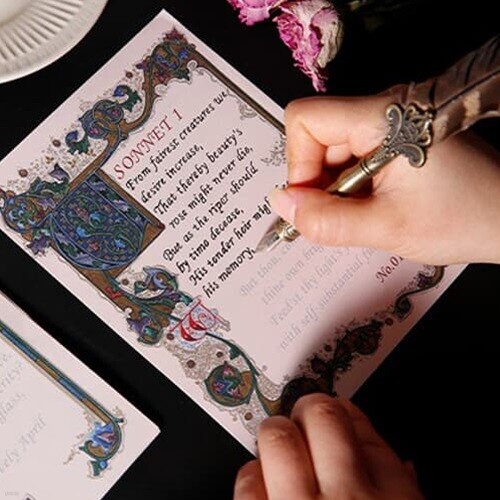 SONNET 1
From fairest creatures we
desire increase,
That thereby beauty's
rose might never die,
But as the riper should
by time decease,
His tender heir mig
his memory
But thou, con
thine own brigh
Feedst thy light's
with self substantial fu
No.0
lass,
vely April